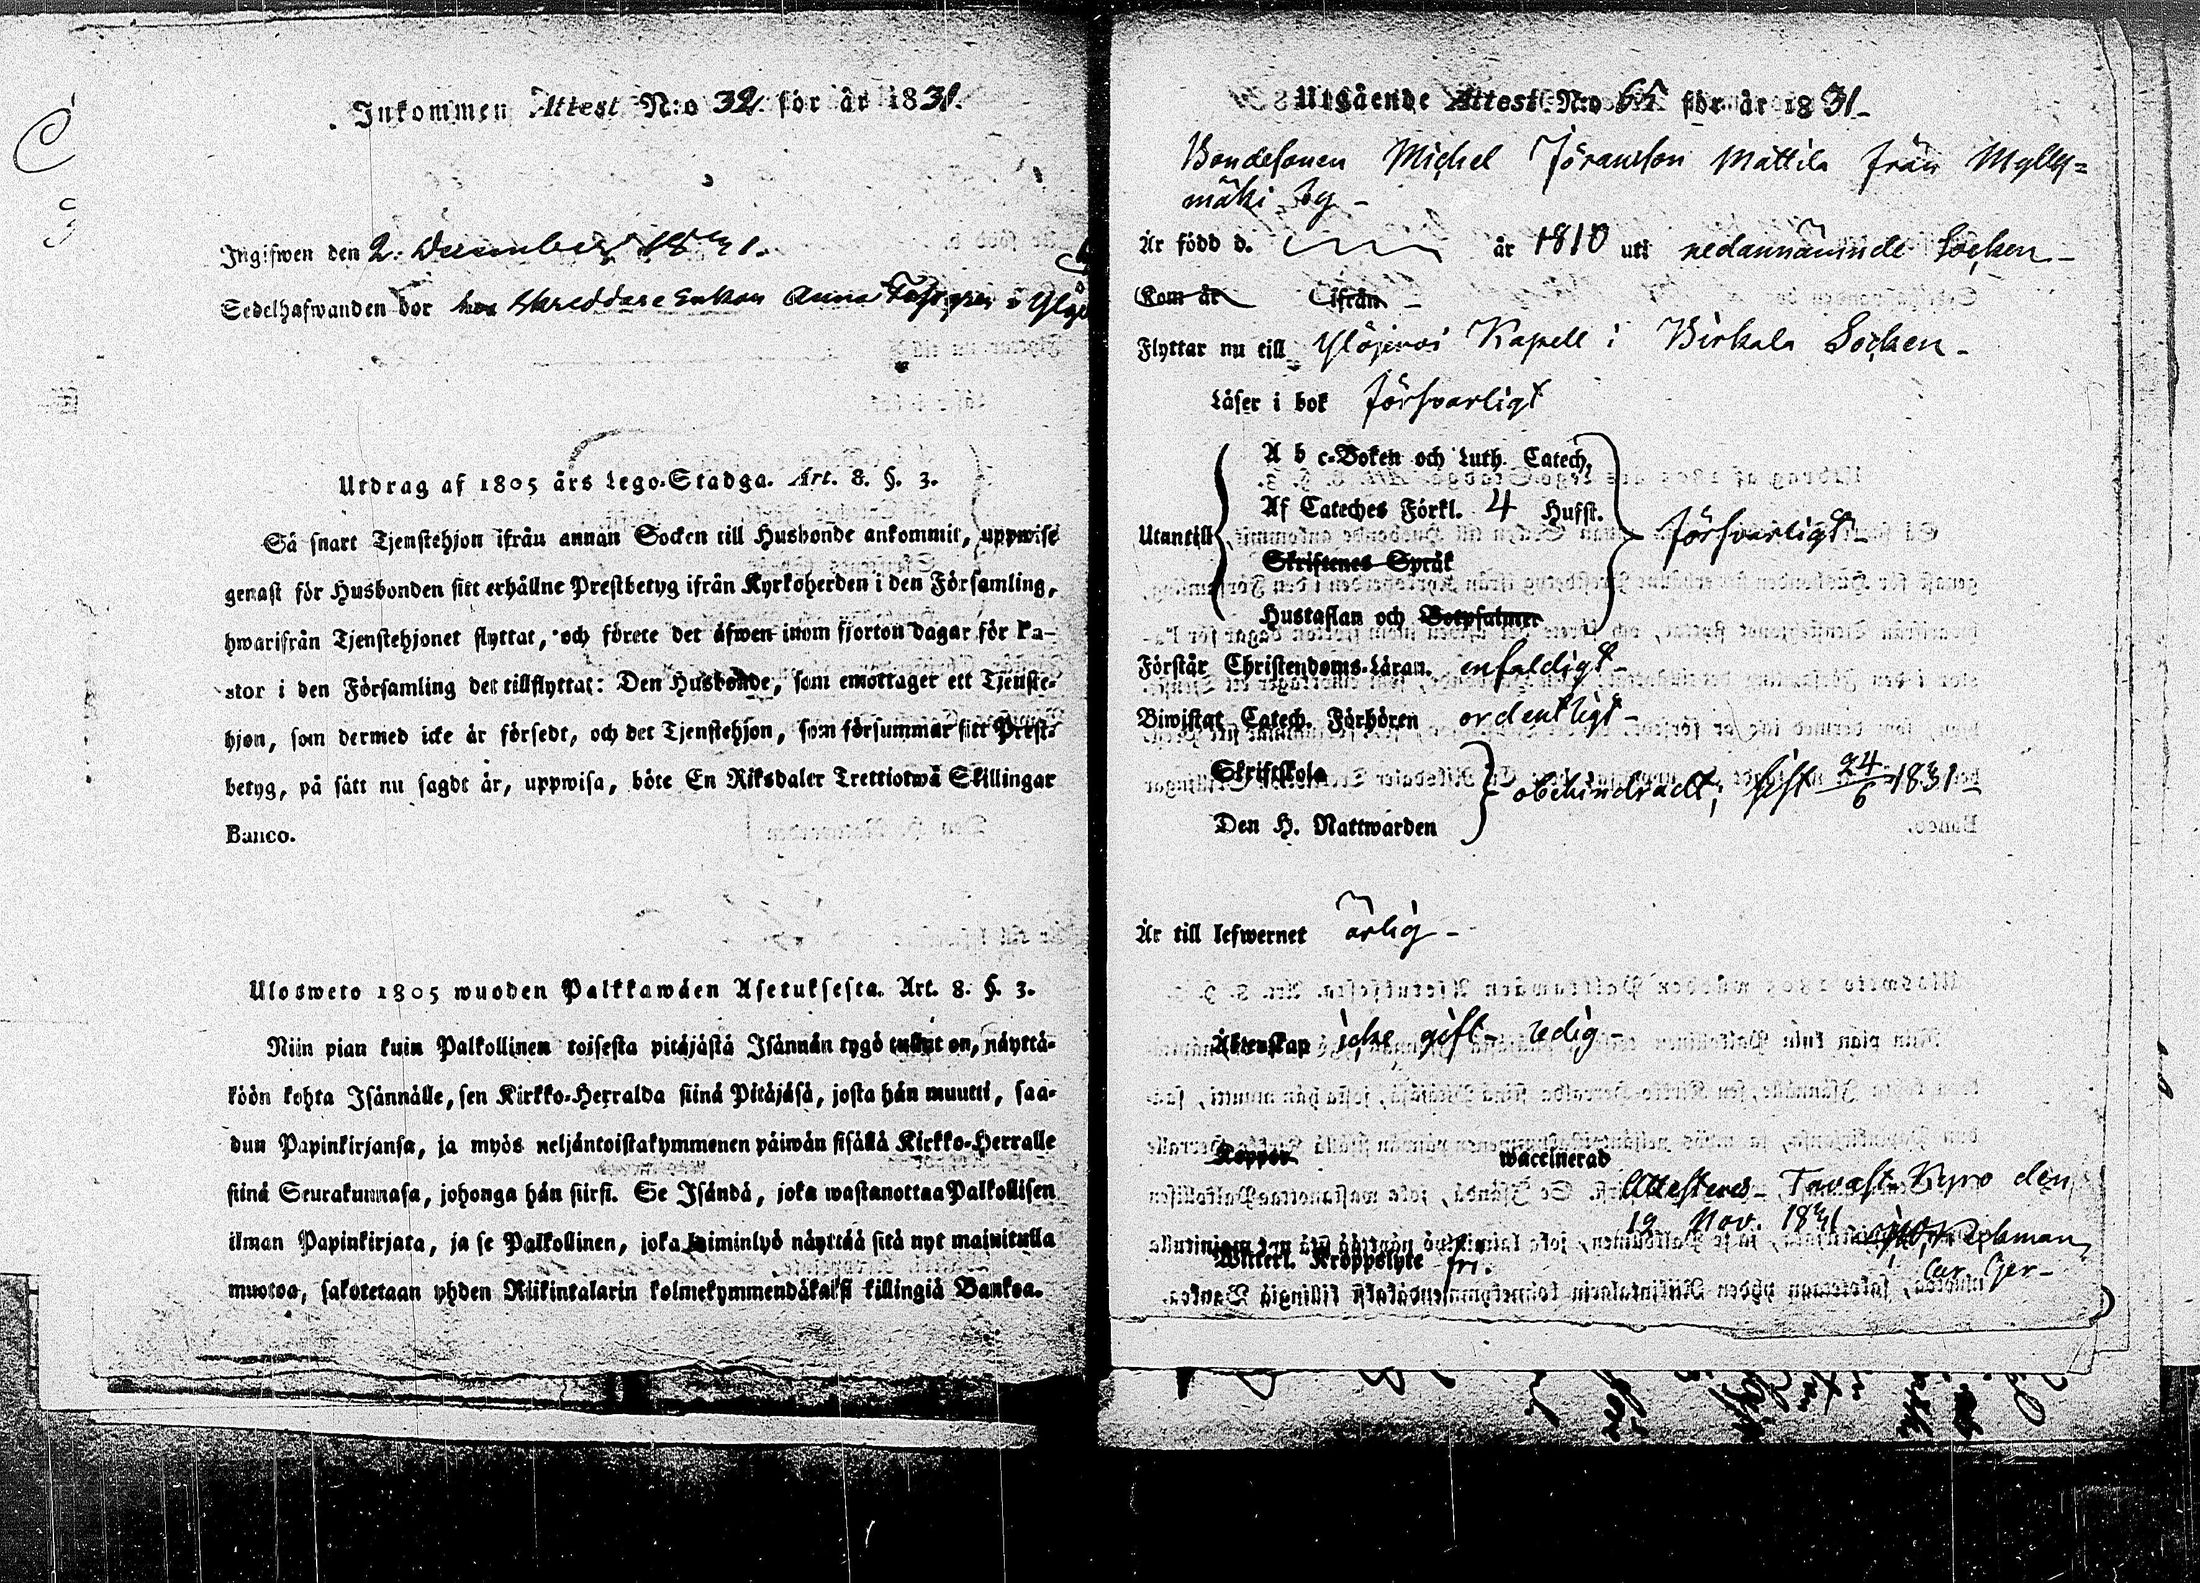 Inkommen Attest N:o 32 för år 1831.
Ingifwen den 2. December 1831.
Sedelhafwanden bor hos Skreddare Enkan Anna
Utdrag af 1805 års Lego-Stadga. Art. 8. §. 3.
Så snart Tjenstehjon ifrån annan Socken till Husbonde ankommit, uppwise
genast för Husbonden sitt erhållne Prestbetyg ifrån Kyrkoherden i den Församling,
hwarifrån Tjenstehjonet flyttat, och förete det äfwen inom fjorton dagar för Pa-
stor i den Församling det tillflyttat: Den Husbonde, som emottager ett Tjenste-
hjon, som dermed icke är försedt, och det Tjenstehjon, som försummar sitt Prest-
betyg, på sätt nu sagdt är, uppwisa, böte En Riksdaler Trettiotwå Skillingar
Banco.
Ulosweto 1805 wuoden Palkkawäen Asetuksesta. Art. 8. §. 3.
Niin pian kuin Palkollinen toisesta pitäjästä Isännän tygö tullut on, näyttä-
köön kohta Isännälle, sen Kirkko-Herralda siinä Pitäjäsä, josta hän muutti, saa-
dun Papinkirjansa, ja myös neljäntoistakymmenen päiwän sisällä Kirkko-Herralle
siinä Seurakunnasa, johonga hän siirsi. Se Isändä, joka wastanottaa Palkollisen
ilman Papinkirjata, ja se Palkollinen, joka laiminlyö näyttää sitä nyt mainitulla
muotoa, sakotetaan yhden Riikintalarin kolmekymmendäkaksi killingiä Bankoa.
Utgående Attest N:o 65 för år 1831-
Bondesonen Michel Jöransson Mattila från Mylly=
mäki By -
Är född d. år 1810 uti nedannämnde Socken -
Kom år ifrån -
Flyttar nu till Ylöjervi Kapell i Birkala Socken -
Läser i bok försvarligt
A b c-Boken och Luth. Catech.
Af Cateches Förkl. 4 Hufst.
Utantill försvarligt -
Skriftenes Språk
Hustaflan och Botpsalmer
Förstår Christendoms-Läran. enfaldigt -
Biwistat Catech. Förhören ordentligt -
Skriftskola
obehindradt; sist 24/6 1831 -
Den H. Nattwarden
Är till lefwernet ärlig -
Äktenskap icke gift - ledig -
Koppor waccinerad
Attesteras - Tavast-Kyro den
19 Nov. 1831
Witterl. Kroppslyte fri.